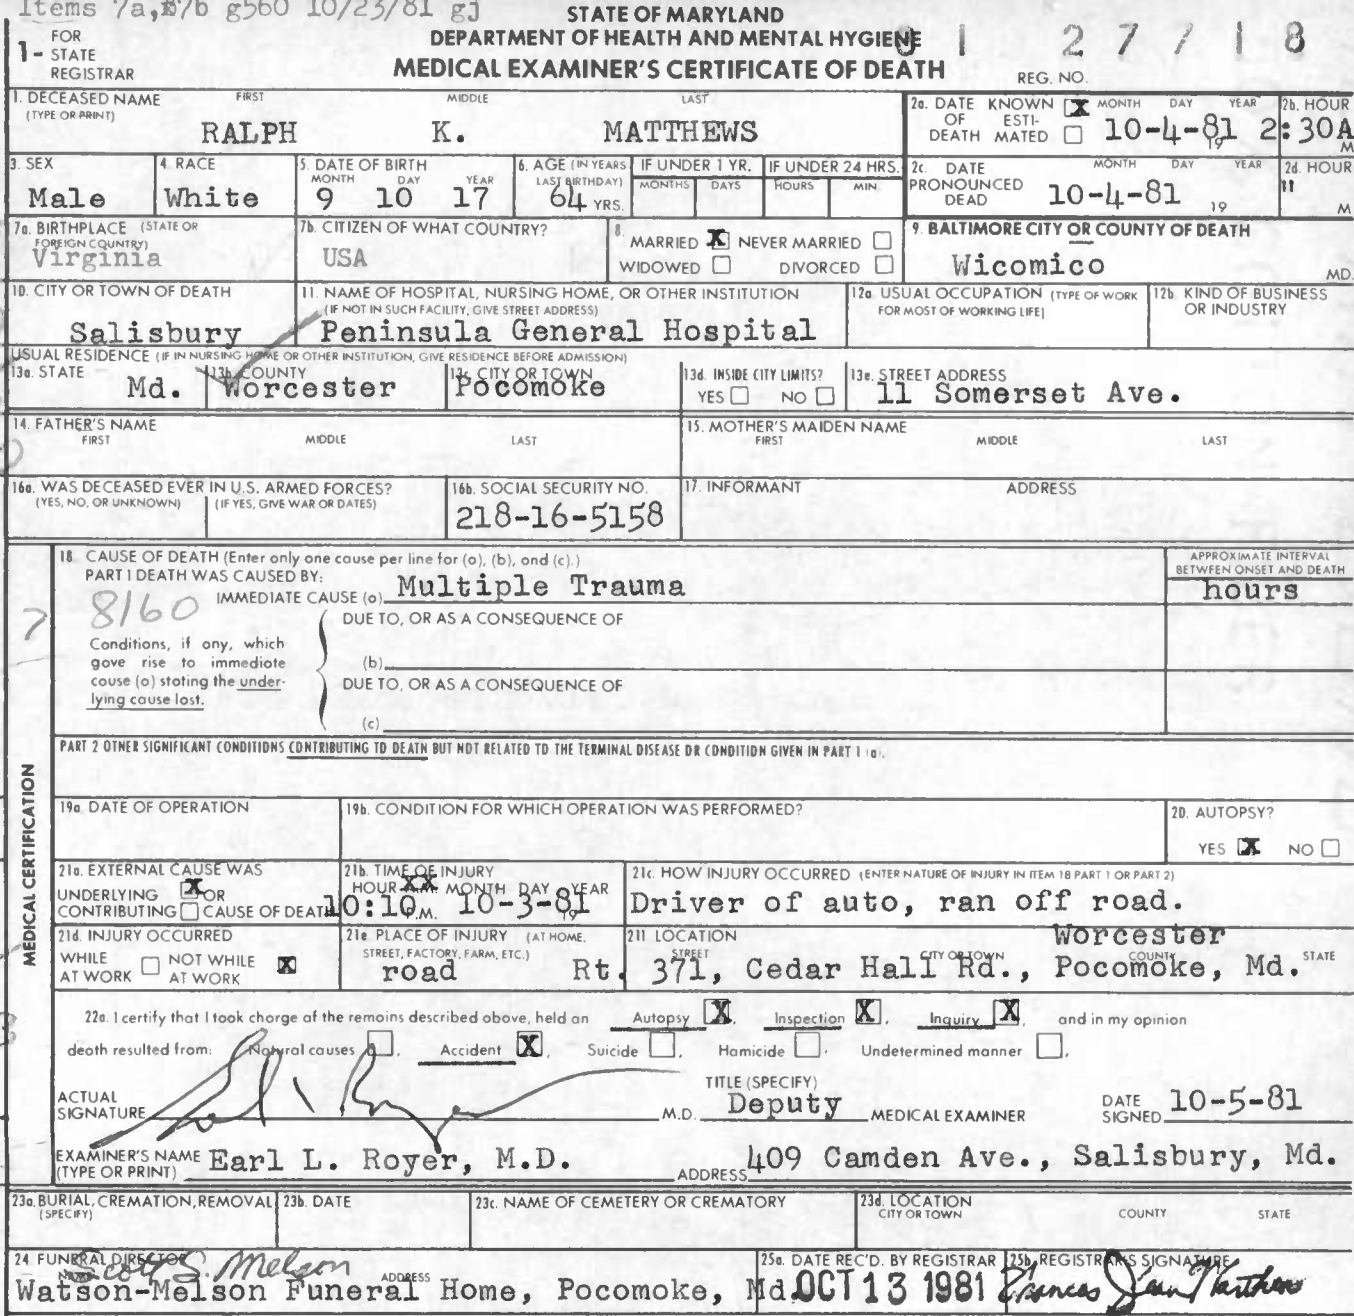 Items 7a,&7b g560 10/23/81 gj
STATE OF MARYLAND
DEPARTMENT OF HEALTH AND MENTAL HYGIENE
MEDICAL EXAMINER'S CERTIFICATE OF DEATH
1- FOR STATE REGISTRAR
81 27718
REG. NO.
1. DECEASED NAME (TYPE OR PRINT) FIRST MIDDLE LAST
RALPH K. MATTHEWS
2a. DATE OF DEATH KNOWN X ESTIMATED MONTH DAY YEAR 10-4-81 19
2b. HOUR 2:30A M
3. SEX Male
4. RACE White
5. DATE OF BIRTH MONTH DAY YEAR 9 10 17
6. AGE (IN YEARS LAST BIRTHDAY) 64 YRS.
IF UNDER 1 YR. MONTHS DAYS
IF UNDER 24 HRS. HOURS MIN.
2c. DATE PRONOUNCED DEAD MONTH DAY YEAR 10-4-81 19
2d. HOUR " M
7a. BIRTHPLACE (STATE OR FOREIGN COUNTRY) Virginia
7b. CITIZEN OF WHAT COUNTRY? USA
8. MARRIED X NEVER MARRIED WIDOWED DIVORCED
9. BALTIMORE CITY OR COUNTY OF DEATH Wicomico MD.
10. CITY OR TOWN OF DEATH Salisbury
11. NAME OF HOSPITAL, NURSING HOME, OR OTHER INSTITUTION (IF NOT IN SUCH FACILITY, GIVE STREET ADDRESS) Peninsula General Hospital
12a. USUAL OCCUPATION (TYPE OF WORK FOR MOST OF WORKING LIFE)
12b. KIND OF BUSINESS OR INDUSTRY
USUAL RESIDENCE (IF IN NURSING HOME OR OTHER INSTITUTION, GIVE RESIDENCE BEFORE ADMISSION)
13a. STATE Md.
13b. COUNTY Worcester
13c. CITY OR TOWN Pocomoke
13d. INSIDE CITY LIMITS? YES NO
13e. STREET ADDRESS 11 Somerset Ave.
14. FATHER'S NAME FIRST MIDDLE LAST
15. MOTHER'S MAIDEN NAME FIRST MIDDLE LAST
16a. WAS DECEASED EVER IN U.S. ARMED FORCES? (YES, NO, OR UNKNOWN) (IF YES, GIVE WAR OR DATES)
16b. SOCIAL SECURITY NO. 218-16-5158
17. INFORMANT ADDRESS
MEDICAL CERTIFICATION
18. CAUSE OF DEATH (Enter only one cause per line for (a), (b), and (c).)
PART I DEATH WAS CAUSED BY:
8160
IMMEDIATE CAUSE (a) Multiple Trauma
APPROXIMATE INTERVAL BETWEEN ONSET AND DEATH
hours
DUE TO, OR AS A CONSEQUENCE OF
Conditions, if any, which gave rise to immediate cause (a) stating the underlying cause last.
(b)
DUE TO, OR AS A CONSEQUENCE OF
(c)
PART 2 OTHER SIGNIFICANT CONDITIONS CONTRIBUTING TO DEATH BUT NOT RELATED TO THE TERMINAL DISEASE OR CONDITION GIVEN IN PART I (a).
19a. DATE OF OPERATION
19b. CONDITION FOR WHICH OPERATION WAS PERFORMED?
20. AUTOPSY? YES X NO
21a. EXTERNAL CAUSE WAS UNDERLYING X OR CONTRIBUTING CAUSE OF DEATH
21b. TIME OF INJURY HOUR XX MONTH DAY YEAR 10:10 P.M. 10-3-81 19
21c. HOW INJURY OCCURRED (ENTER NATURE OF INJURY IN ITEM 18 PART 1 OR PART 2)
Driver of auto, ran off road.
21d. INJURY OCCURRED WHILE AT WORK NOT WHILE AT WORK X
21e. PLACE OF INJURY (AT HOME, STREET, FACTORY, FARM, ETC.) road
21f. LOCATION STREET CITY OR TOWN COUNTY STATE
Worcester
Rt. 371, Cedar Hall Rd., Pocomoke, Md.
22a. I certify that I took charge of the remains described above, held an Autopsy X, Inspection X, Inquiry X, and in my opinion
death resulted from: Natural causes, Accident X, Suicide, Homicide, Undetermined manner.
ACTUAL SIGNATURE M.D.
TITLE (SPECIFY) Deputy MEDICAL EXAMINER
DATE SIGNED 10-5-81
EXAMINER'S NAME (TYPE OR PRINT) Earl L. Royer, M.D.
ADDRESS 409 Camden Ave., Salisbury, Md.
23a. BURIAL, CREMATION, REMOVAL (SPECIFY)
23b. DATE
23c. NAME OF CEMETERY OR CREMATORY
23d. LOCATION CITY OR TOWN COUNTY STATE
24. FUNERAL DIRECTOR NAME ADDRESS
Scott S. Melson
Watson-Melson Funeral Home, Pocomoke, Md.
25a. DATE REC'D. BY REGISTRAR OCT 13 1981
25b. REGISTRAR'S SIGNATURE Frances Jean